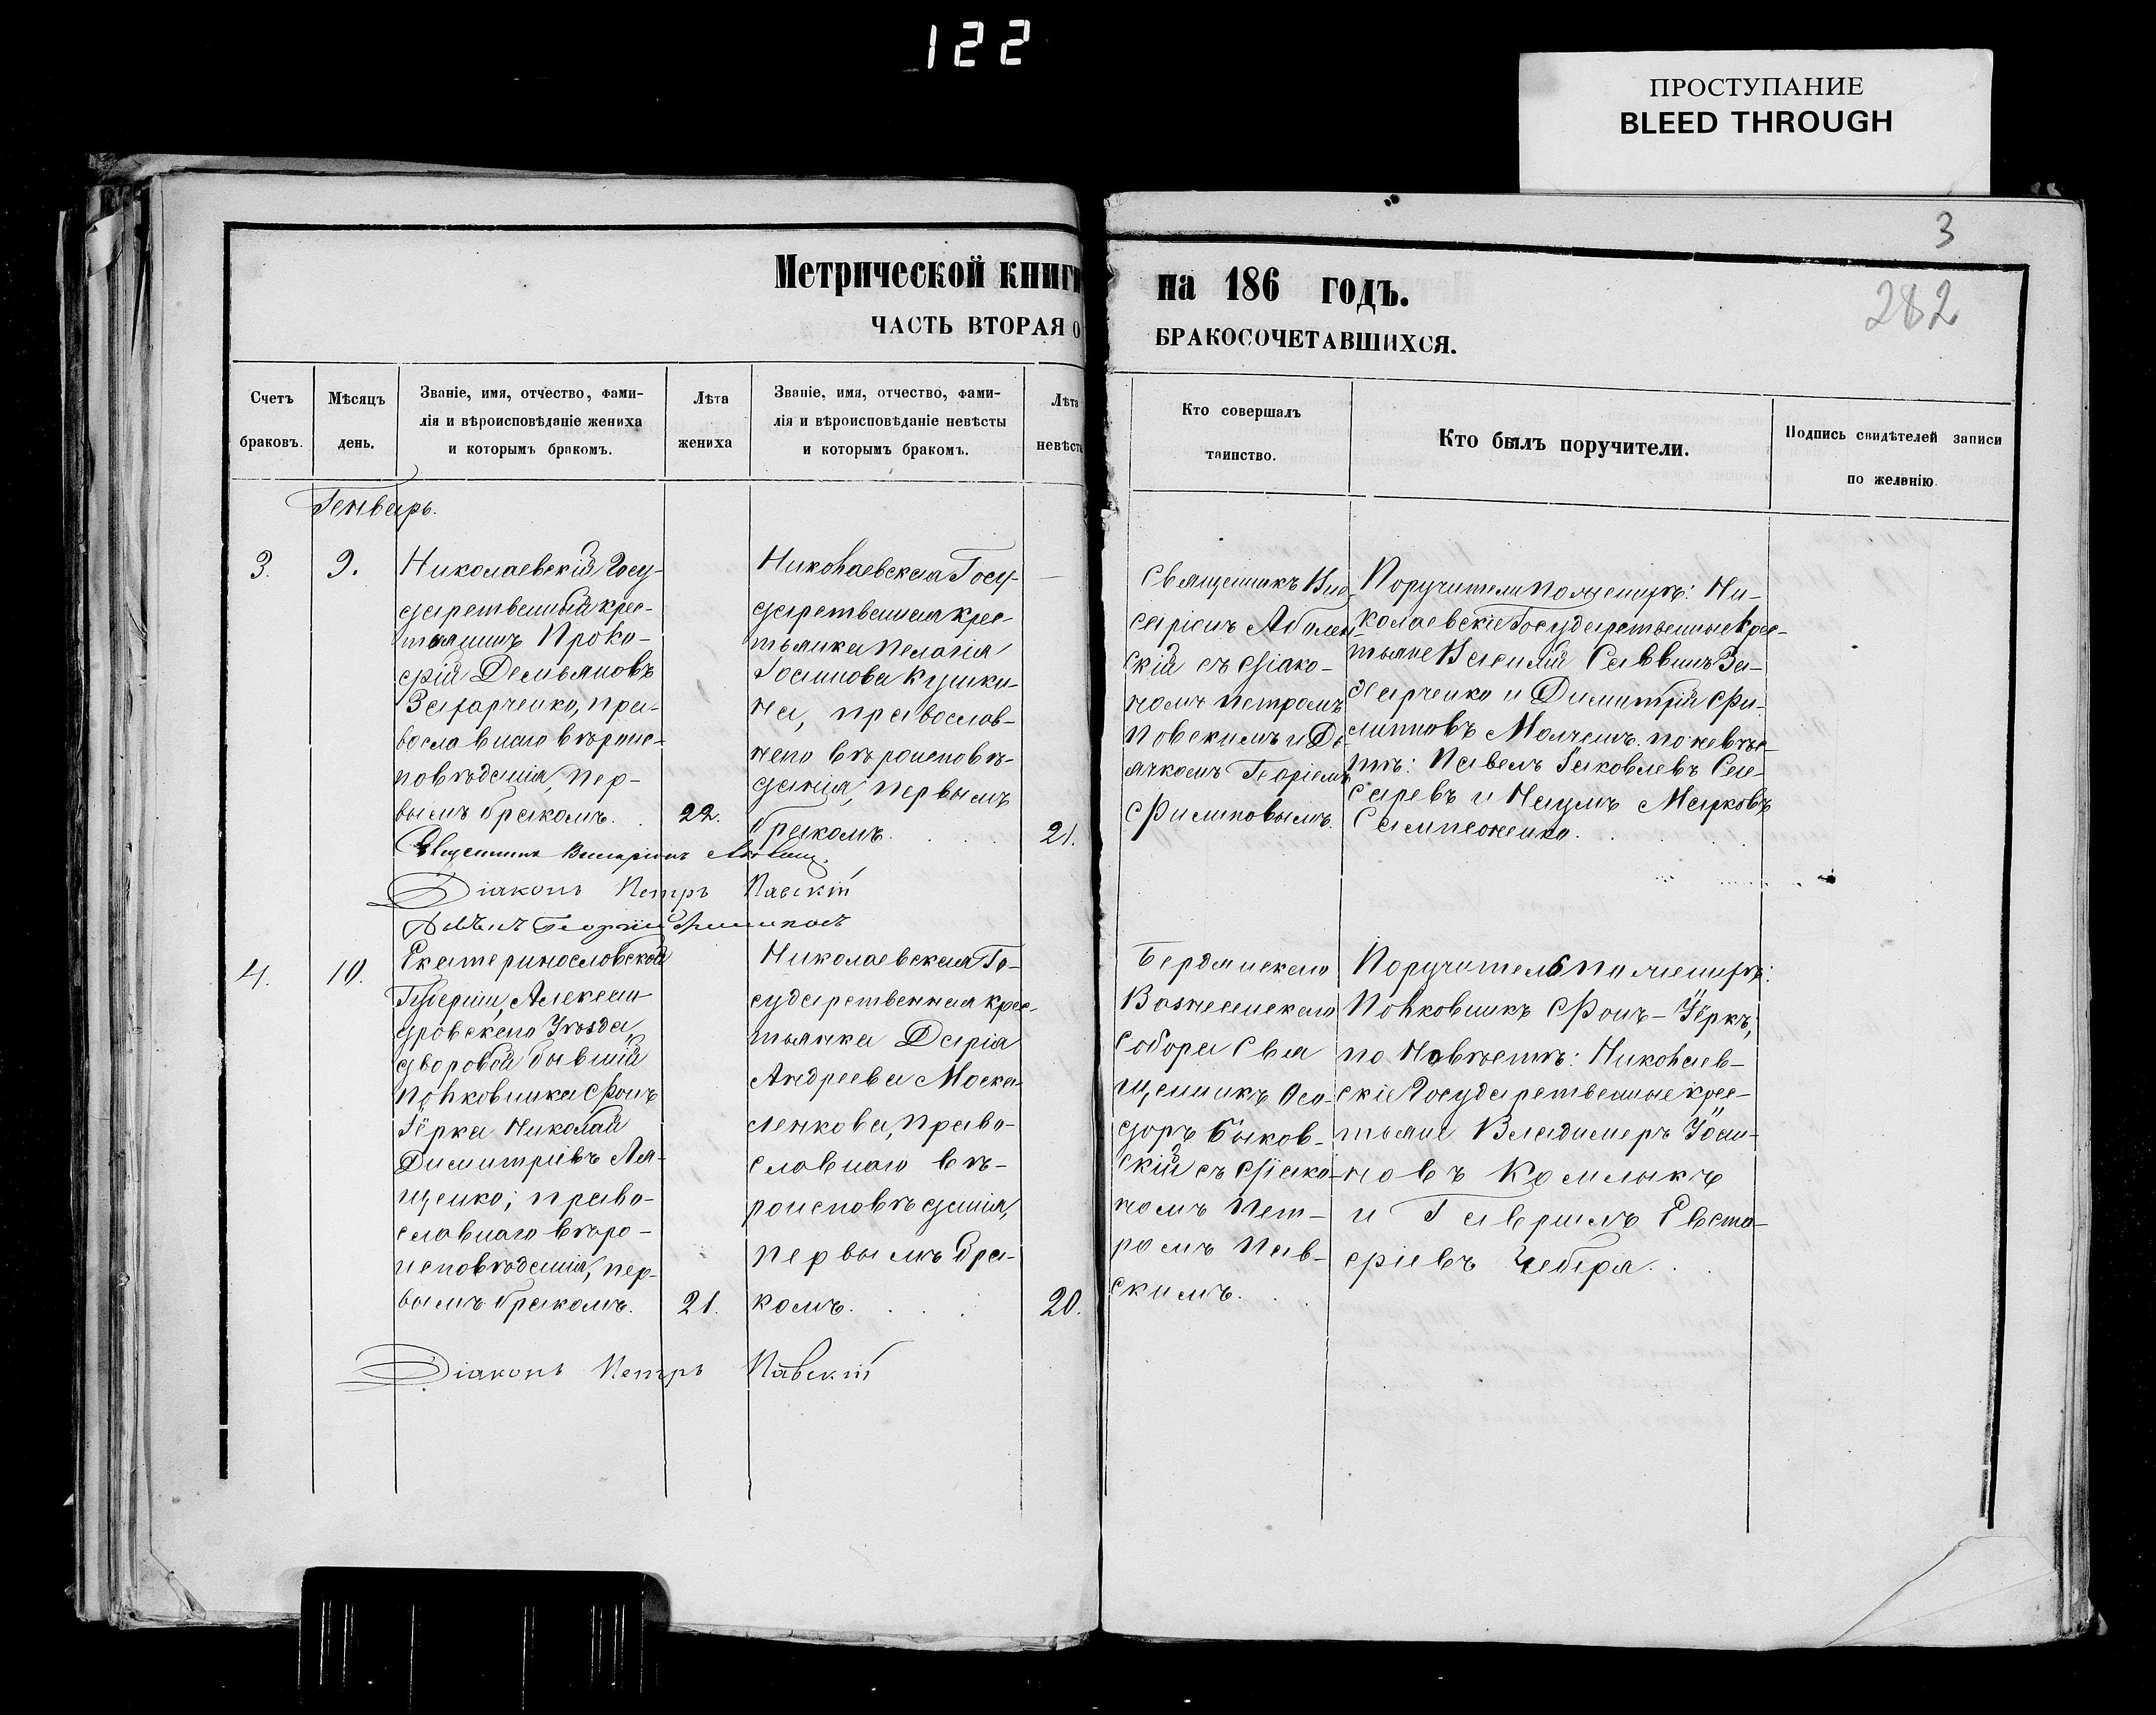 122
ПРОСТУПАНИЕ
BLEED THROUGH
3
282
Метрической книги
на 186 годъ.
ЧАСТЬ ВТОРАЯ О
БРАКОСОЧЕТАВШИХСЯ.
Счетъ
браковъ.
Мѣсяцъ
день.
Званіе, имя, отчество, фами-
лія и вѣроисповѣданіе жениха
и которымъ бракомъ.
Лѣта
жениха
Званіе, имя, отчество, фами-
лія и вѣроисповѣданіе невѣсты
и которымъ бракомъ.
Лѣта
невѣсты
Кто совершалъ
таинство.
Кто былъ поручители.
Подпись свидѣтелей записи
по желанію
Генварь.
3.
9.
Николаевскій Госу-
дарственный крес-
тьянинъ Проко-
фій Демьяновъ
Захарченко, пра-
вославнаго вѣроис-
повѣданія, пер-
вымъ бракомъ.
22.
Николаевская Госу-
дарственная крес-
тьянка Пелагія
Іосипова Кушки-
на, православ-
наго вѣроисповѣ-
данія, первымъ
бракомъ.
21.
Священникъ Вис-
саріонъ
скій съ діако-
номъ Петромъ
Павскимъ и Дь-
ячкомъ Георгіемъ
Филиповымъ.
Поручители по женихѣ: Ни-
колаевскіе Государственные крес-
тьяне Василій Саввинъ За-
харченко и Димитрій Фи-
липповъ по невѣс-
тѣ: Павелъ Яковлевъ Сле-
саревъ и Наумъ Марковъ
Священникъ Виссаріонъ
Діаконъ Петръ Павскій
Дьячекъ Георгій Филиповъ
4.
10.
Екатеринословской
Губерніи, Алексан-
дровскаго Уѣзда,
дворовой бывшій
Полковника Фонъ
Іёрка Николай
Димитріевъ Ля-
щенко; право-
славнаго вѣро-
исповѣданія, пер-
вымъ бракомъ.
21.
Николаевская Го-
сударственная крес-
тьянка Дарія
Андреева Моска-
ленкова, право-
славнаго вѣ-
роисповѣданія,
первымъ бра-
комъ.
20.
Бердянскаго
Вознесенскаго
Собора Свя
щенникъ Ѳео-
доръ Быков-
скій съ діако-
номъ Пет-
ромъ Пав-
скимъ.
Поручитель по женихѣ:
Полковникъ Фонъ-Іёркъ;
по Невѣстѣ: Николаев-
скіе Государственные крес-
тьяне Владимеръ Іоси-
повъ Комлыкъ
и Гавріилъ Евста-
фіевъ Чебря.
Діаконъ Петръ Павскій